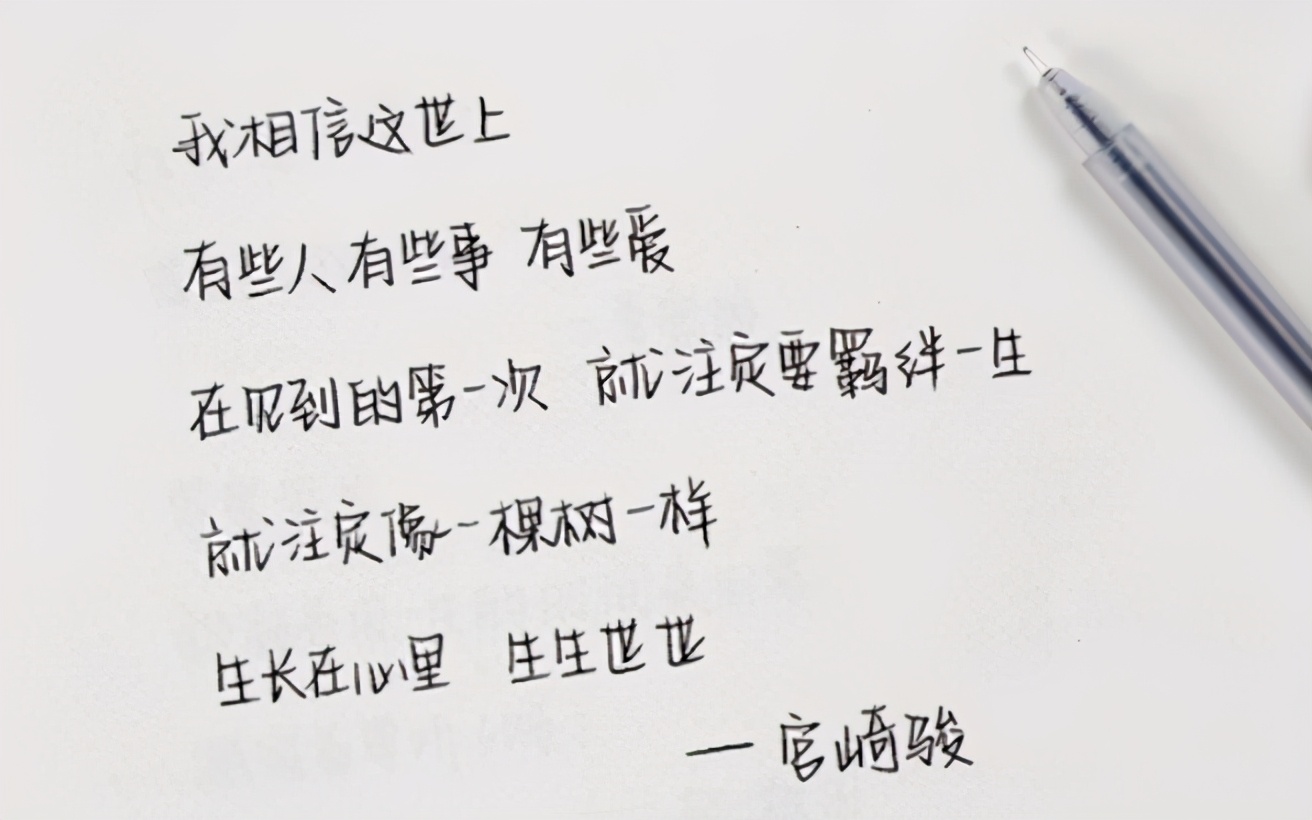 我相信这世上
有些人有些事 有些爱
在见到的第一次 就注定要羁绊一生
就注定像一棵树一样
生长在心里 生生世世
— 宫崎骏